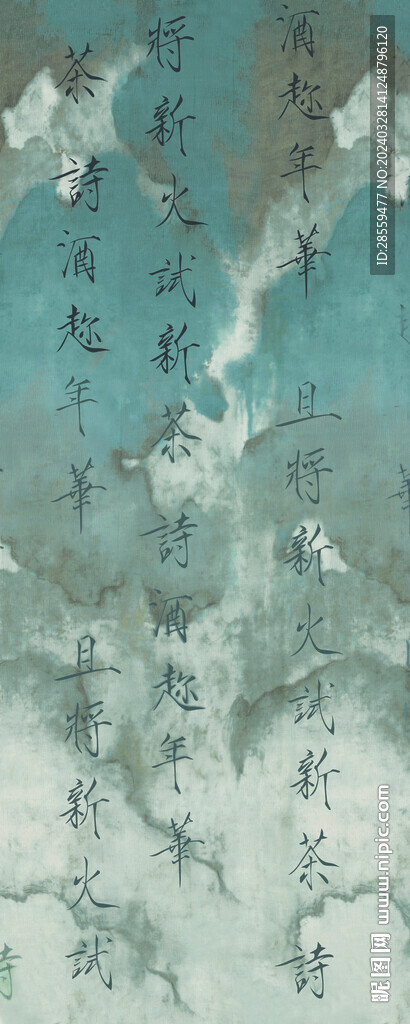 酒趂年華
且將新火試新茶詩
將新火試新茶詩酒趂年華
茶詩酒趂年華
且將新火試
詩
ID:28559477 NO:20240328141248796120
昵图网 www.nipic.com